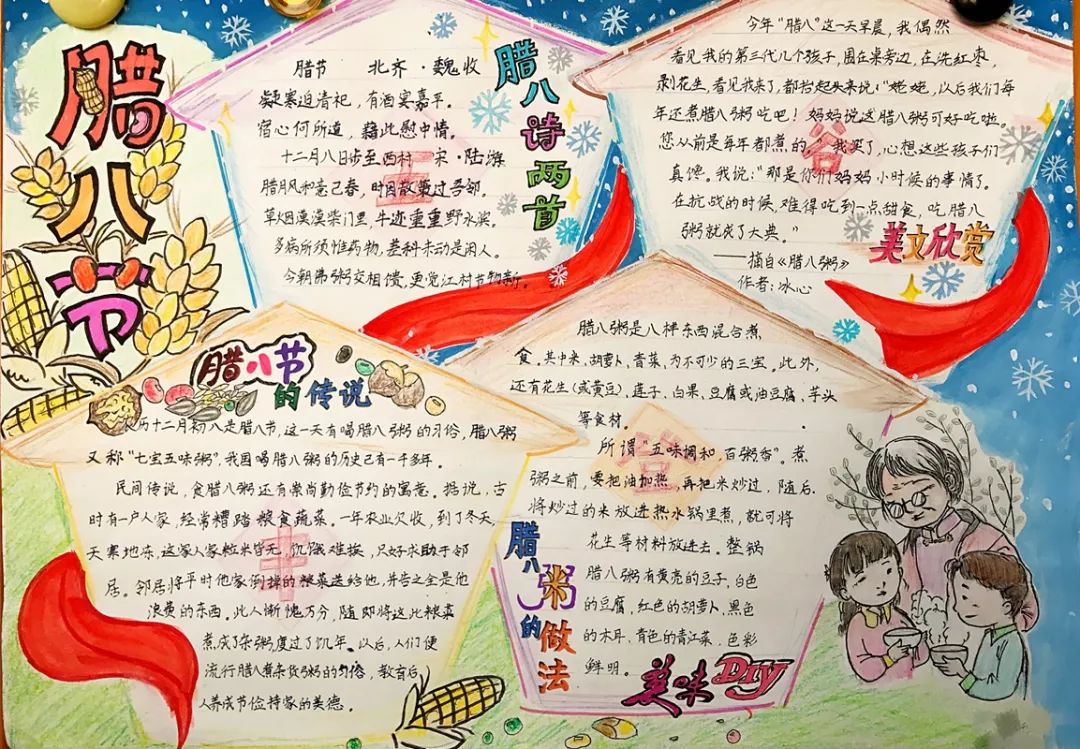 腊八节
腊八诗两首
腊节 北齐·魏收
凝寒迫清祀，有酒宴嘉平。
宿心何所道，藉此慰中情。
十二月八日步至西村 宋·陆游
腊月风和意已春，时因散策过吾邻。
草烟漠漠柴门里，牛迹重重野水滨。
多病所须惟药物，差科未动是闲人。
今朝佛粥交相馈，更觉江村节物新。
今年“腊八”这一天早晨，我偶然
看见我的第三代几个孩子，围在桌旁边，在洗红枣，
剥花生，看见我来了，都抬起头来说：“姥姥，以后我们每
年还煮腊八粥吃吧！妈妈说这腊八粥可好吃啦。
您从前是每年都煮的。”我笑了，心想这些孩子们
真馋。我说：“那是你们妈妈小时候的事情了。
在抗战的时候，难得吃到一点甜食，吃腊八
粥就成了大典。”
——摘自《腊八粥》
作者：冰心
美文欣赏
谷
腊八节
的传说
农历十二月初八是腊八节，这一天有喝腊八粥的习俗，腊八粥
又称“七宝五味粥”，我国喝腊八粥的历史已有一千多年。
民间传说，食腊八粥还有崇尚勤俭节约的寓意。据说，古
时有一户人家，经常糟踏粮食蔬菜。一年农业欠收，到了冬天
天寒地冻，这家人家粒米皆无，饥饿难挨，只好求助于邻
居。邻居将平时他家倒掉的粮菜送给他，并告之全是他
浪费的东西。此人惭愧万分，随即将这此粮菜
煮成了杂粥度过了饥年。以后，人们便
流行腊八煮杂货粥的习俗，教育后
人养成节俭持家的美德。
丰
腊八粥是八样东西混合煮
食。其中米、胡萝卜、青菜，为不可少的三宝，此外，
还有花生（或黄豆）、莲子、白果、豆腐或油豆腐、芋头
等食材。
所谓“五味调和，百粥香”。煮
粥之前，要把油加热，再把米炒过，随后，
将炒过的米放进热水锅里煮，就可将
花生等材料放进去。整锅
腊八粥有黄亮的豆子，白色
的豆腐，红色的胡萝卜，黑色
的木耳，青色的青江菜，色彩
鲜明。
腊八粥的做法
美味DIY